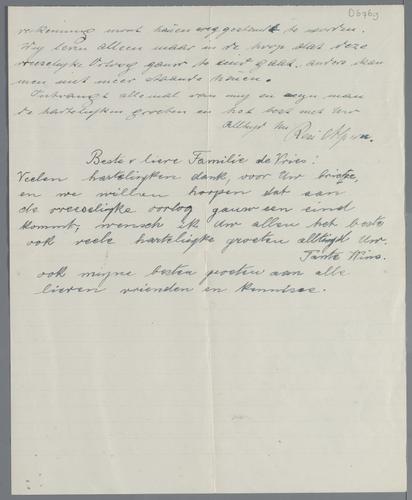 D6969
verkenning moet haben weggestuurd te worden.
Wy leven alleen maar in de hoop dat deze
vreeselyke Oorlog gauw te eind gaat, anders kan
men niet meer staande houen.
Ontvangt allemaal van my en myn man
de hartelyken groeten en het best met Uw
Alltyd Uw
Beste & lieve Familie de Vries!
Veelen hartelijken dank, voor Uw briefje,
en we willen hoopen dat aan
de vreeselijke oorlog gauw een eind
kommt, wensch ik Uw allen het beste
ook veele hartelijke groeten alltijd Uw.
Tante Wina.
ook mijne besten groeten aan alle
lieven vrienden en kennisse.